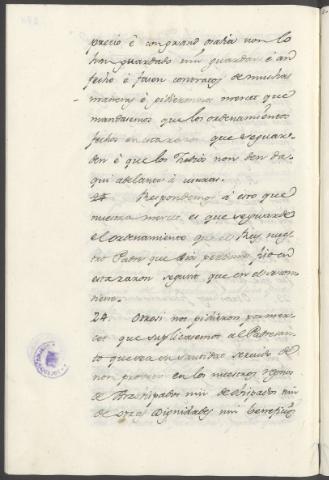 precio é con grand osadia non lo
han guardado nin guardan é an
fecho é facen contratos de muchas
maneras é pidieronnos merced que
mandasemos que los ordenamientos
fechos en esta razon que se guar-
den é que los Judios non den da-
qui adelante á usuras.
24. Respondemos á esto que
nuestra merced es que se guarde
el ordenamiento que el Rey nues-
tro Padre que Dios perdone fizo en
esta razon segunt que en él se con-
tiene.
24. Otrosi nos pidieron por mer-
cet que suplicasemos al Padre san-
to que sea en santidat servido de
non proveer en los nuestros regnos
de Arzobispados nin de obispados nin
de otras Dignidades nin beneficios